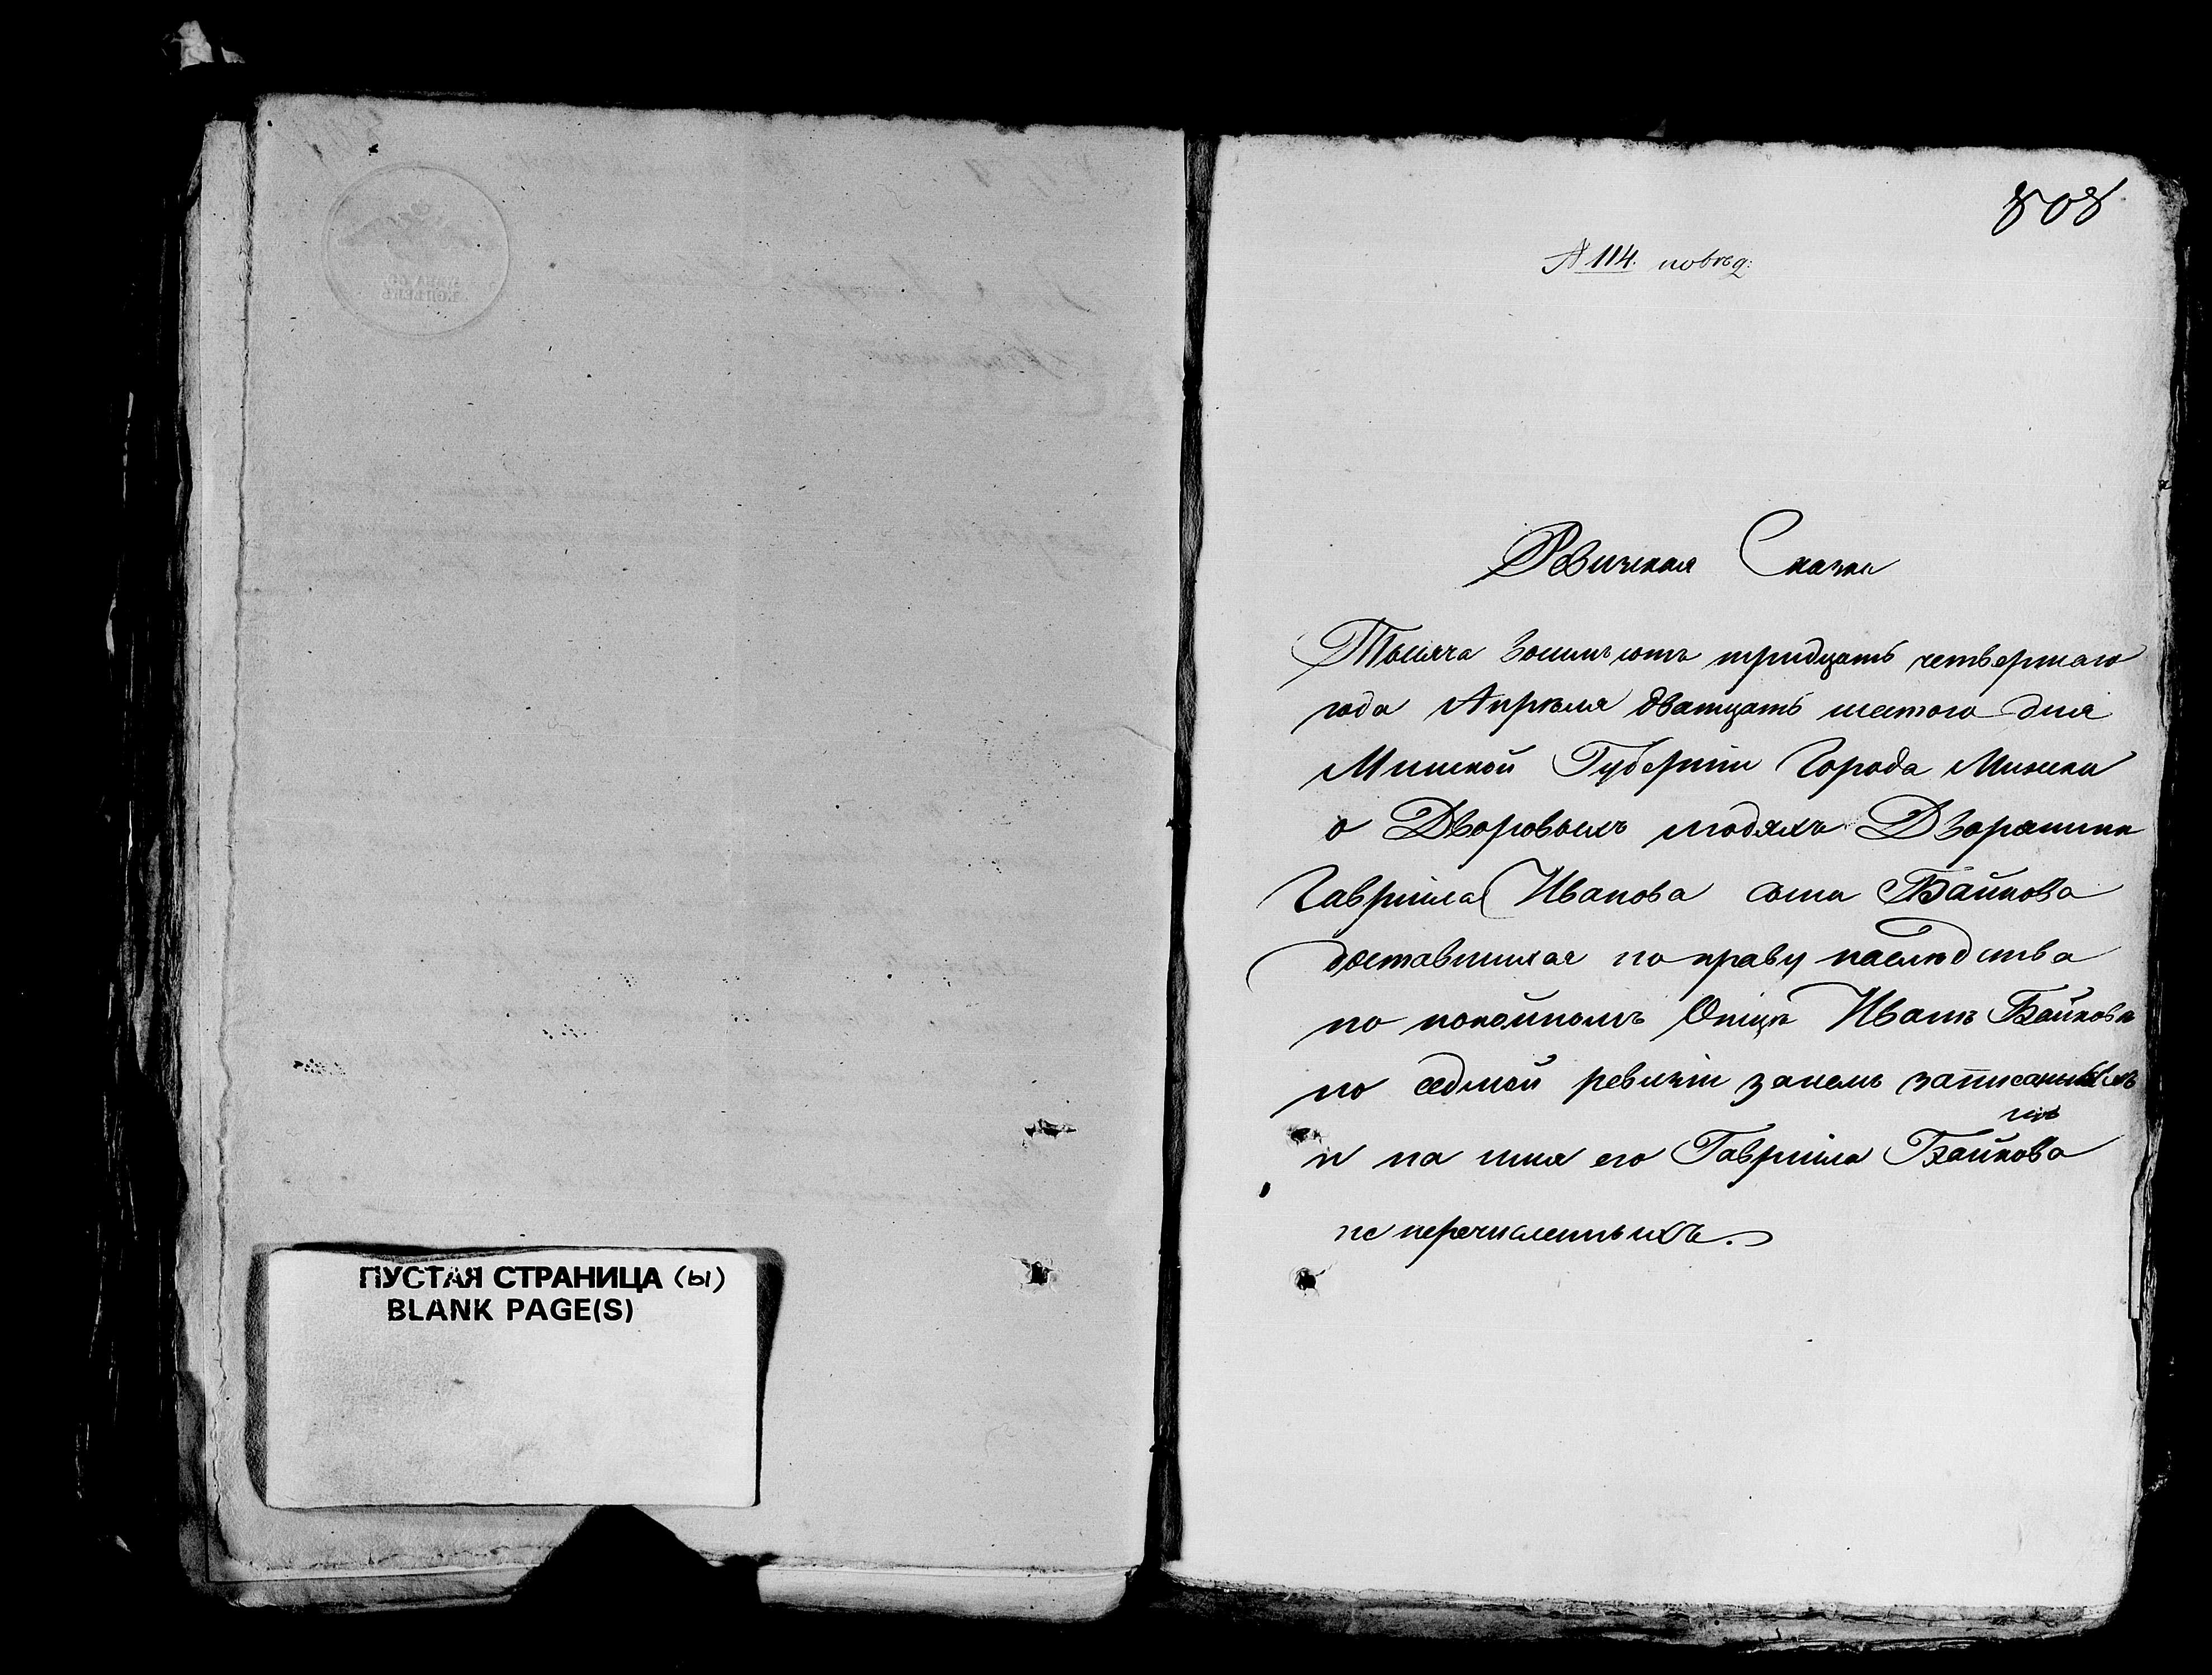 ПУСТАЯ СТРАНИЦА (ы)
BLANK PAGE(S)
808
№ 114. повѣд:
Ревизская Сказка
Тысяча восимъ сотъ тридцать четвертаго
года Апрѣля дватцать шестого дня
Минской Губерніи Города Минска
о Дворовыхъ людяхъ Дворянина
Гавріила Иванова сына Байкова
доставшихся по праву наслѣдства
по покойномъ Отцѣ Иванѣ Байковѣ
по седмой ревизіи занемъ записанныхъ
и на имя его Гавріила Байкова
не перечисленныхъ.